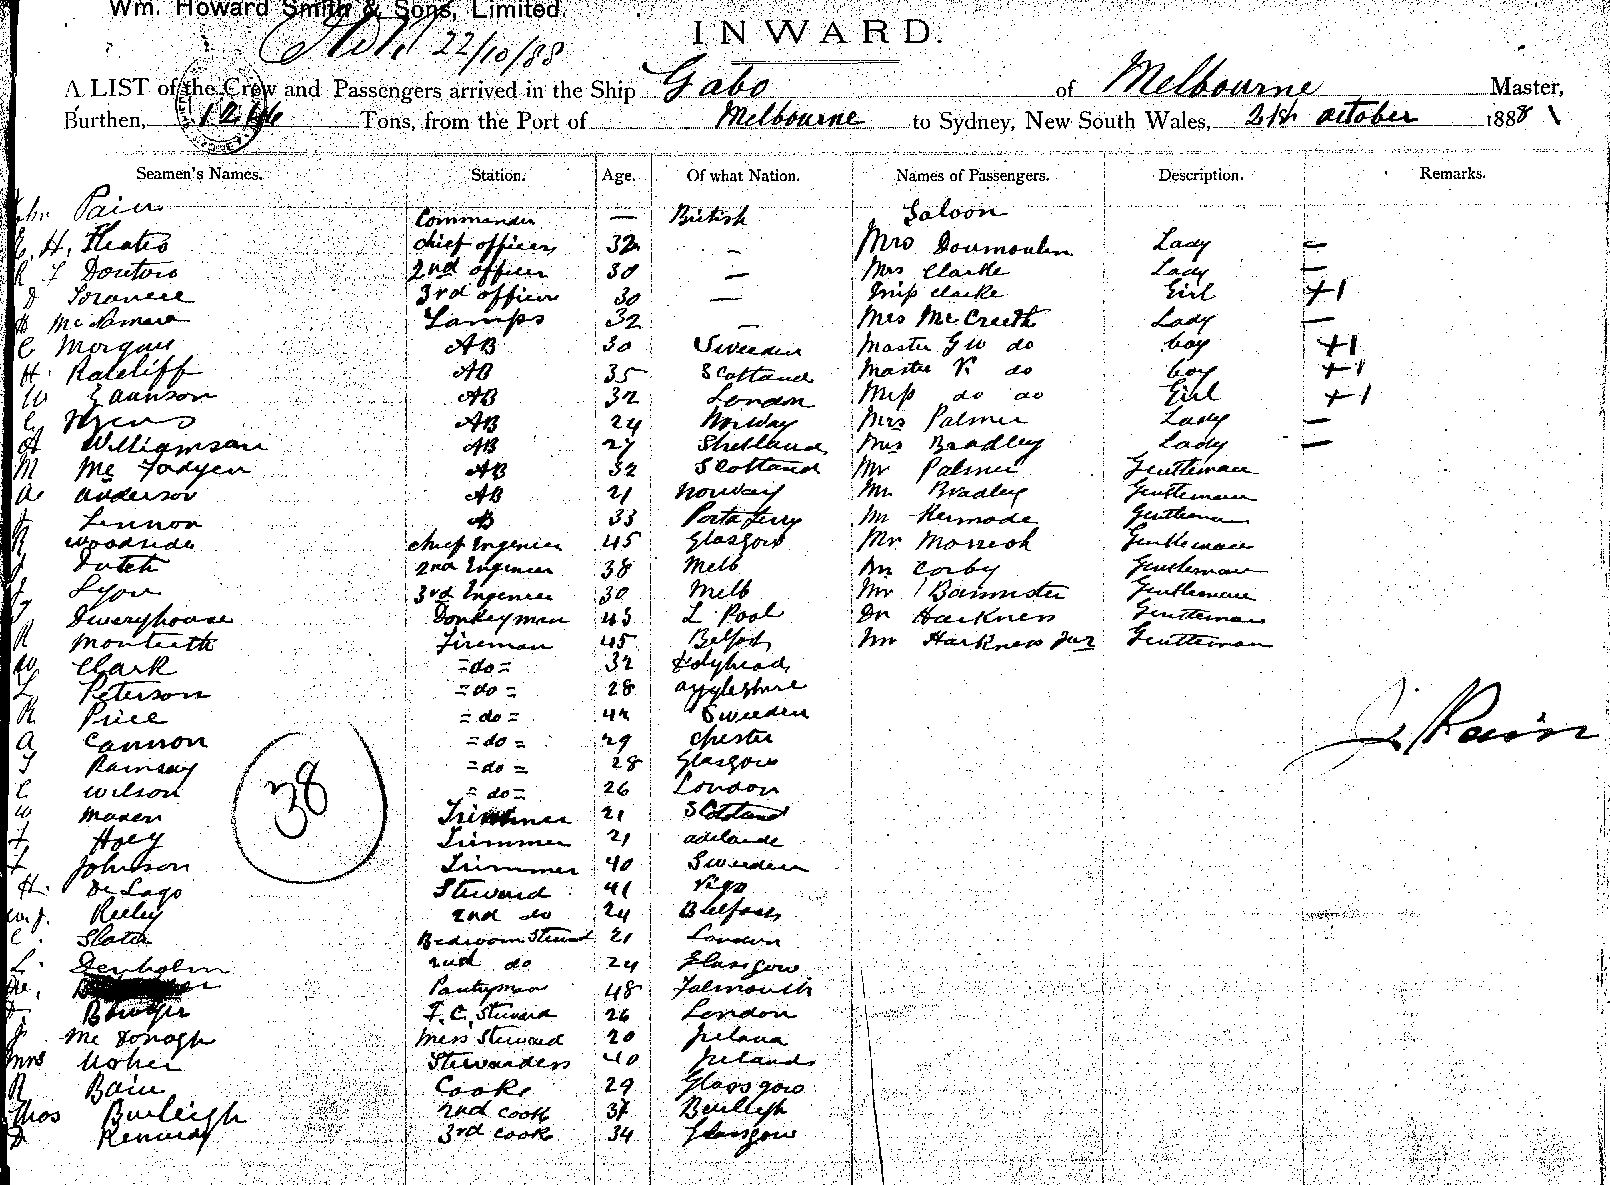 Wm. Howard Smith & Sons, Limited.
22/10/88
INWARD.
A LIST of the Crew and Passengers arrived in the Ship Gabo of Melbourne Master,
Burthen, Tons, from the Port of Melbourne to Sydney, New South Wales, 21st October 1888
Seamen's Names. Station. Age. Of what Nation. Names of Passengers. Description. Remarks.
John Pain Commander — British Saloon
H. chief officer 32 - Mrs Doumoulin Lady —
2nd officer 30 — Mrs Clarke Lady —
3rd officer 30 — Miss Clarke Girl +1
McNamara Lamps 32 - Mrs McCreeth Lady —
C Morgan AB 30 Sweeden Master G W do boy +1
H. Ratcliff AB 35 Scotland Master V do boy +1
W AB 32 London Miss do do Girl +1
C AB 24 Norway Mrs Palmer Lady —
A Williamson AB 27 Shetland Mrs Bradley Lady —
M Mc Fadyen AB 32 Scotland Mr Palmer Gentleman
A Anderson AB 21 Norway Mr Bradley Gentleman
Lennon AB 33 Porta Ferry Mr Kermode Gentleman
R Woodside chief Ingenier 45 Glasgow Mr Gentleman
Dutch 2nd Ingenier 38 Melb Mr Corby Gentleman
Lyon 3rd Ingenier 30 Melb Mr Bannister Gentleman
Dweryhouse Donkeyman 43 L Pool Dr Harkness Gentleman
R Monteith Fireman 45 Belfast Mr Harkness Jur Gentleman
W Clark =do= 32 Holyhead
L Peterson =do= 28
R Price =do= Sweeden
A Cannon =do= 29 Chester
J Ramsay =do= 28 Glasgow
C Wilson =do= 26 London
W Trimmer 21 Scotland
38
J. Pain
Hoey Trimmer 21 adelaide
Johnson Trimmer 40 Sweeden
H. De Lago Steward 41 Vigo
W.J. Reeley 2nd do 24 Belfast
C. Slater Bedroom Steward 21 London
L. Denholm 2nd do 24 Glasgow
Pantryman 48 Falmouth
F.C. Steward 26 London
Mc Donagh Mess Steward 20 Ireland
Mrs Usher Stewardess 40 Ireland
R Bain Cooke 29 Glassgow
Thos Burleigh 2nd cook 37 Burleigh
3rd cook 34 Glasgow